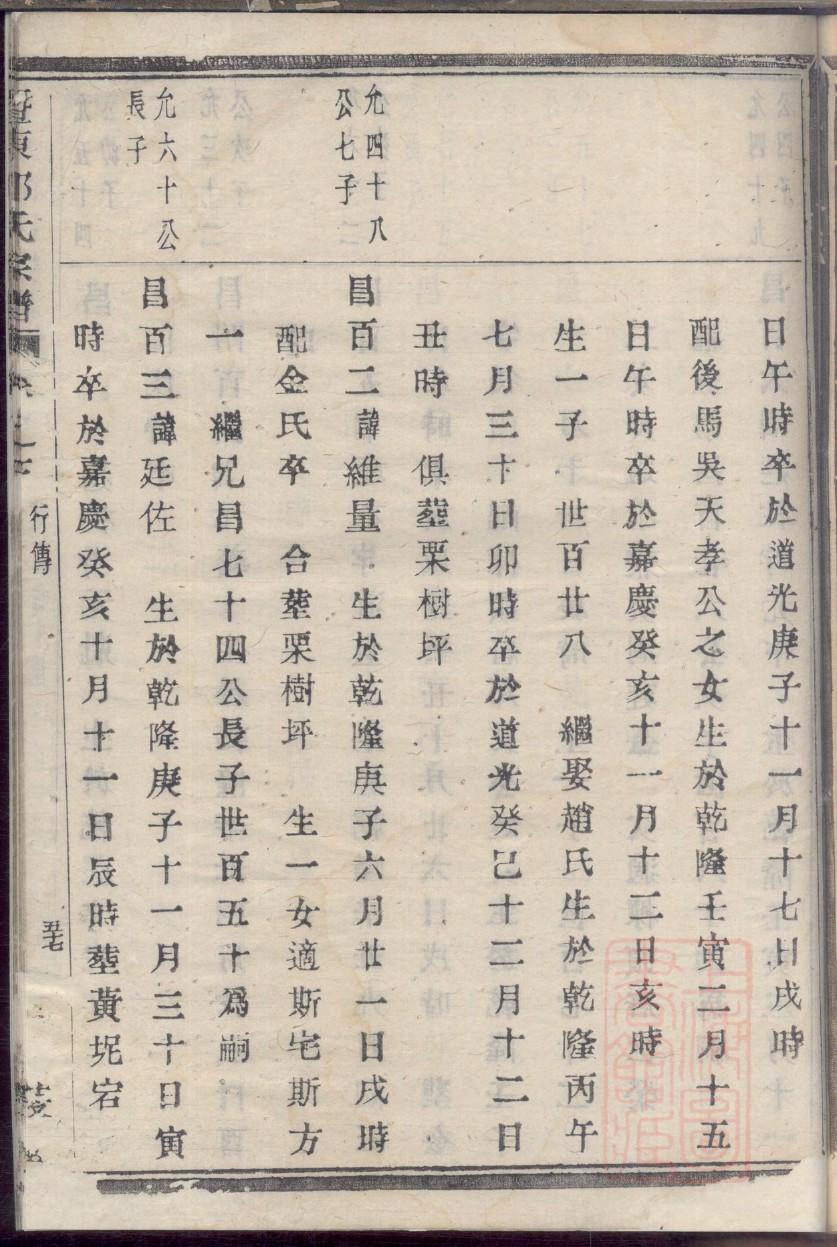 日午時卒於道光庚子十一月十七日戌時
配後馬吳天孝公之女生於乾隆壬寅二月十五
日午時卒於嘉慶癸亥十一月十二日亥時
生一子 世百廿八 繼娶趙氏生於乾隆丙午
七月三十日卯時卒於道光癸巳十二月十二日
丑時俱塟栗樹坪
允四十八
公七子
昌百二諱維量 生於乾隆庚子六月廿一日戌時
配金氏卒 合塟栗樹坪 生一女適斯宅斯方
一 繼兄昌七十四公長子世百五十爲嗣
允六十公
長子
昌百三諱廷佐 生於乾隆庚子十一月三十日寅
時卒於嘉慶癸亥十月十一日辰時塟黃坭宕
氏宗譜
行傳